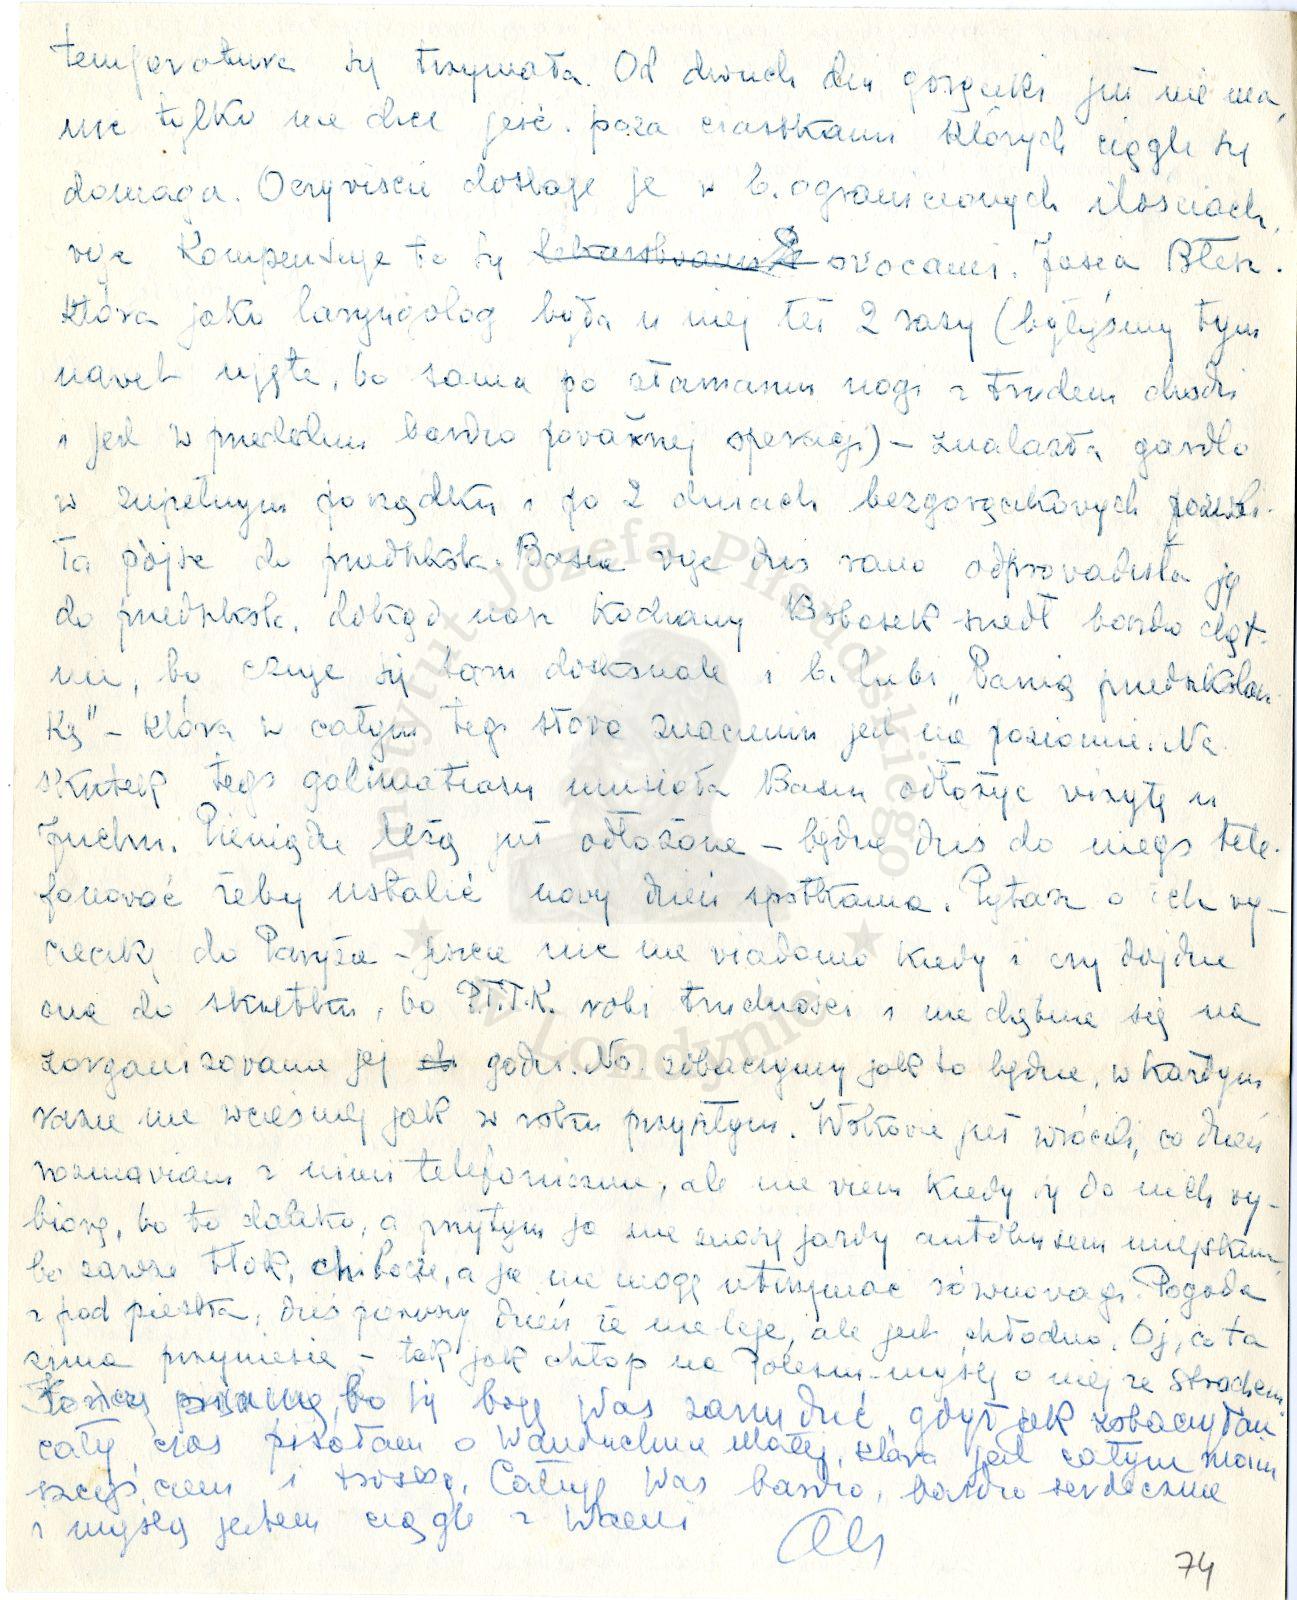 temperatura się trzymała. Od dwuch dni gorączki już nie ma,
nic tylko nie chce jeść poza ciastkami których ciągle się
domaga. Oczywiście dostaje je w b. ograniczonych ilościach,
więc kompensuje to się owocami. Josia Błesz.
która jako laryngolog była u niej też 2 razy (byłyśmy tym
nawet ujęte, bo sama po złamaniu nogi z trudem chodzi
i jest w przededniu bardzo poważnej operacji) – znalazła gardło
w zupełnym porządku i po 2 dniach bezgorączkowych pozwoli-
ła pójść do przedszkola. Basia więc dziś rano odprowadziła ją
do przedszkola, dokąd nasz kochany Bobosek szedł bardzo chęt-
nie, bo czuje się tam doskonale i b. lubi „Panią przedszkolan-
kę" – która w całym tego słowa znaczeniu jest na poziomie. Na
skutek tego galimatiasu musiała Basia odłożyć wizytę u
Juchn. Pieniądze leżą już odłożone – będzie dziś do niego tele-
fonować żeby ustalić nowy dzień spotkania. Pytasz o ich wy-
cieczkę do Paryża – jeszcze nic nie wiadomo kiedy i czy dojdzie
ona do skutku, bo P.T.T.K. robi trudności i niechętnie się na
zorganizowanie jej godzi. No zobaczymy jak to będzie, w każdym
razie nie wcześniej jak w roku przyszłym. Wolkowie już wrócili, co dzień
rozmawiam z nimi telefonicznie, ale nie wiem kiedy się do nich wy-
biorę, bo to daleko, a przytym ja nie znoszę jazdy autobusem miejskim,
bo zawsze tłok, chybocze, a ja nie mogę utrzymać równowagi. Pogoda
z pod pieska, dziś pierwszy dzień że nie leje, ale jest chłodno. Oj, co ta
zima przyniesie – tak jak chłop na Polesiu – myślę o niej ze strachem.
Kończę pisaninę, bo się boję Was zanudzić, gdyż jak zobaczyłam
cały czas pisałam o Wanduchnie Małej, która jest całym moim
szczęściem i troską. Całuję Was bardzo, bardzo serdecznie
i myślą jestem ciągle z Wami
74
Instytut Józefa Piłsudskiego
w Londynie